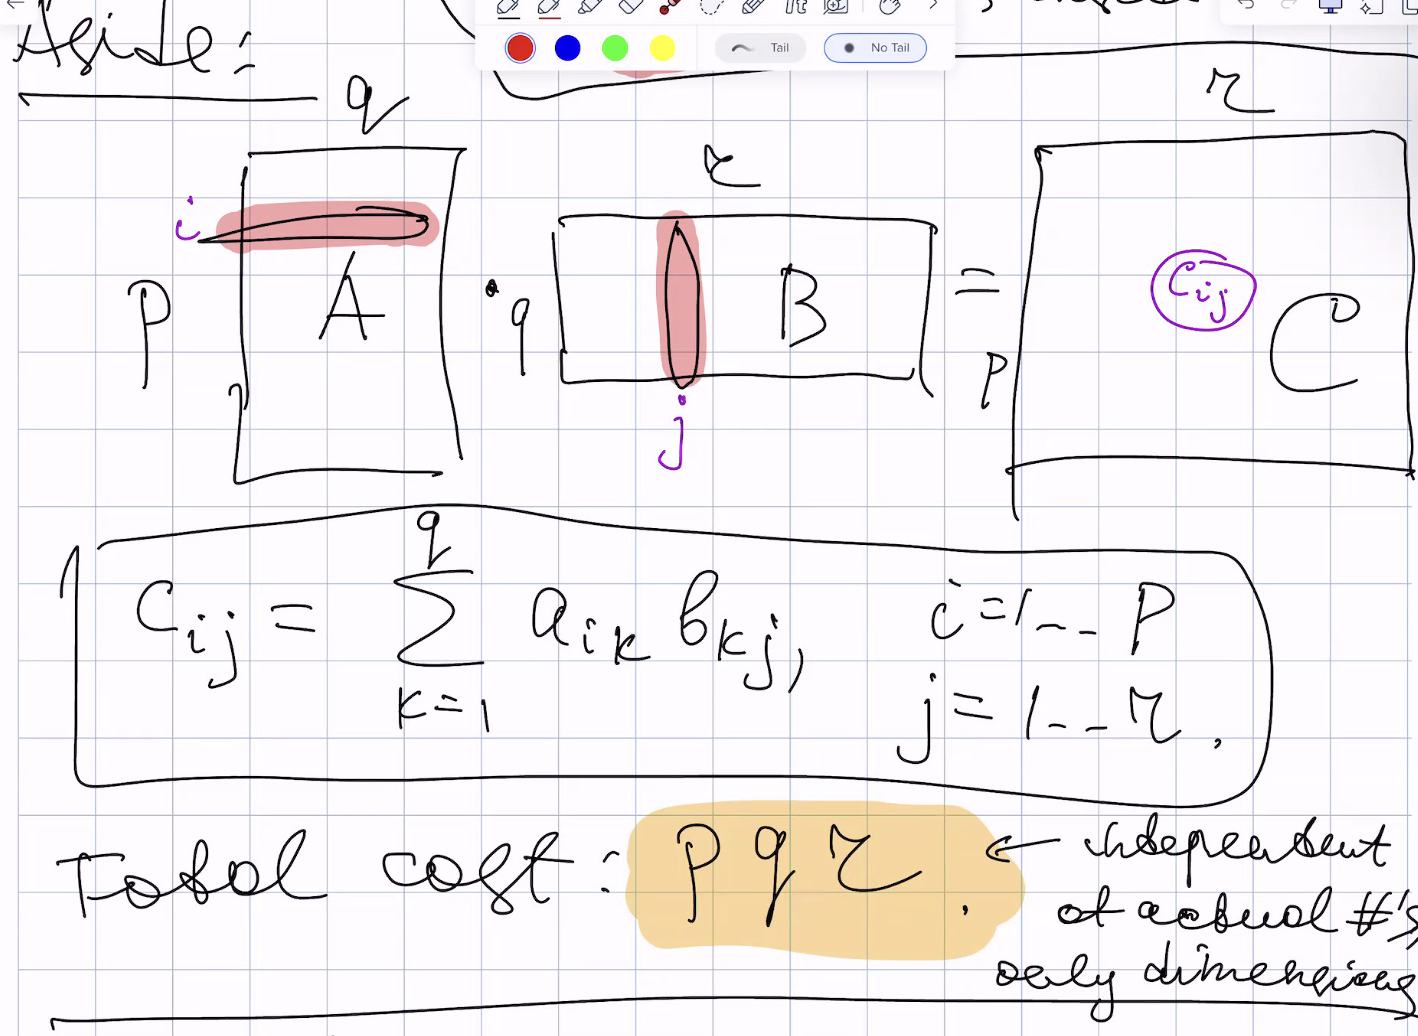 Tail
No Tail
Aside:
q
r
r
i
p
A
·
q
B
=
p
Cij
C
j
q
Cij = Σ aik bkj, i=1-- p
k=1
j=1--r.
Total cost: p q r. ← independent
of actual #'s,
only dimensions